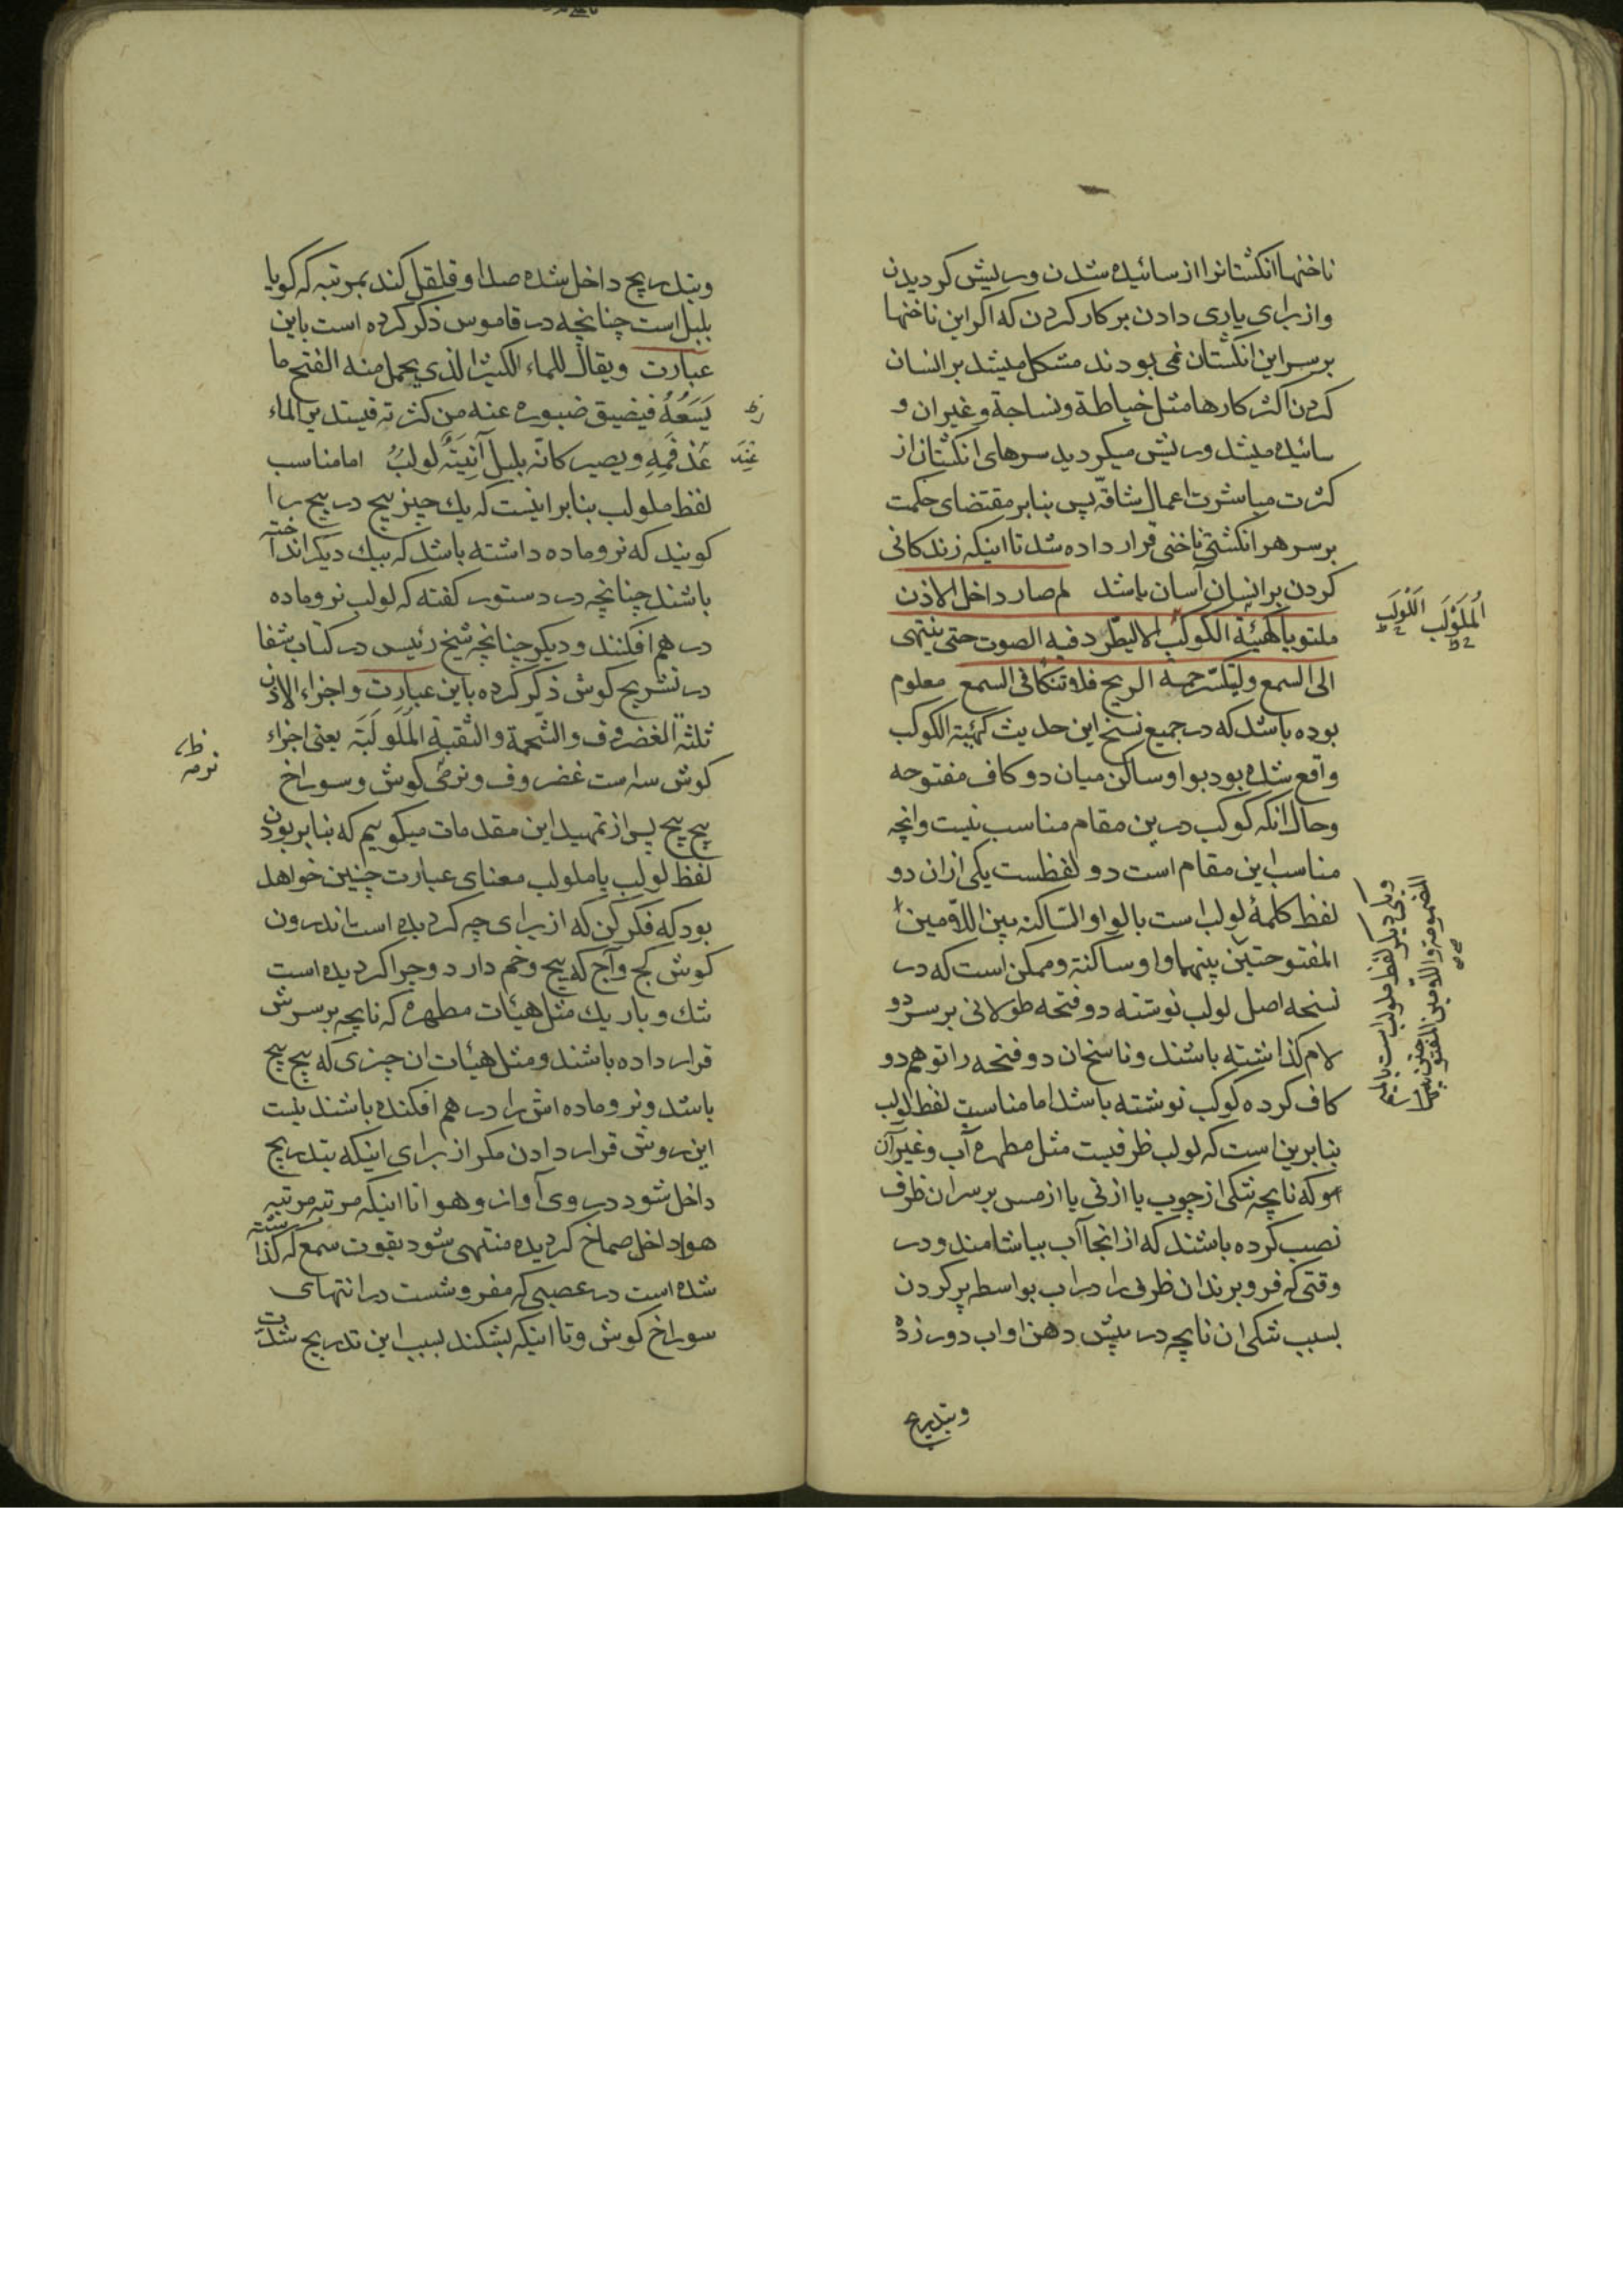 ناخنها انکشتانرا از سائیده شدن و ریش کردیدن
و از برای یاری دادن بر کار کردن که اکر این ناخنها
بر سر این انکشتان نمی بودند مشکل میشد بر انسان
کردن اکثر کارها مثل خیاطة و نساجة و غیر ان و
سائیده میشد و ریش میکردید سرهای انکشتان از
کثرت مباشرت اعمال شاقّه پس بنابر مقتضای حکمت
بر سر هر انکشتی ناخنی قرار داده شد تا اینکه زندکانی
کردن بر انسان آسان باشد لم صار داخل الاذن
ملتویا کهیئة الکوکب الا لیطّرد فیه الصوت حتی ینتهی
الی السمع و لیتکسّر حمة الریح فلا تنکأ فی السمع معلوم
بوده باشد که در جمیع نسخ این حدیث کهیئة الکوکب
واقع شده بود بواو ساکن میان دو کاف مفتوحه
و حال انکه کوکب درین مقام مناسب نیست و انچه
مناسب این مقام است دو لفظست یکی از ان دو
لفظ کلمۀ لولب است بالواو السّاکنه بین اللّامین
المفتوحتین بینهما واو ساکنة و ممکن است که در
نسخه اصل لولب نوشته دو فتحه طولانی بر سر دو
لام کذاشته باشند و ناسخان دو فتحه را توهم دو
کاف کرده کوکب نوشته باشد اما مناسبت لفظ لولب
بنابرین است که لولب ظرفیست مثل مطهره آب و غیر آن
که نایچه تنکی از چوب یا از نی یا از مس بر سر ان ظرف
نصب کرده باشند که از انجا آب بیاشامند و در
وقتی که فرو برند ان ظرفی را در اب بواسطه پر کردن
بسبب تنکی ان نایچه در پیش دهن او اب دور زده
و بتدریج
اَلمُلَوْلَب اللَّوْلَب
و یکی دیکر لفظ ملولب است بالمیم
المضمومة و اللامین المفتوحتین بینهما
و بتدریج داخل شده صدا و قلقل کند بمرتبه که کویا
بلبل است چنانچه در قاموس ذکر کرده است باین
عبارت و یقال للماء الکثیر الذی یحمل منه الفتح ما
یَسَعُهُ فیضیق صنبوره عنه من کثرته فیستدیر الماء
عند فمِهِ و یصیر کانّه بلبل آنِیَتِهِ لولبُ اما مناسب
لفظ ملولب بنابر اینست که یك چیز پیچ در پیچ را
کویند که نر و ماده داشته باشد که بیك دیکر انداخته
باشند چنانچه در دستور کفته که لولب نر و ماده
در هم افکنند و دیکر چنانچه شیخ رئیس در کتاب شفا
در تشریح کوش ذکر کرده باین عبارت و اجزاء الاذن
ثلثة الغضروف و الشّحمة و الثقبة المُلَولَبَة یعنی اجزاء
کوش سه است غضروف و نرمۀ کوش و سوراخ
پیچ پیچ پس از تمهید این مقدمات میکوییم که بنابر بودن
لفظ لولب یا ملولب معنای عبارت چنین خواهد
بود که فکر کن که از برای چه کردیده است اندرون
کوش کج و آج که پیچ و خم دارد و چرا کردیده است
تنك و باریك مثل هیئات مطهره که نایچه بر سرش
قرار داده باشند و مثل هیئات ان چیزی که پیچ پیچ
باشد و نر و ماده اش را در هم افکنده باشند نیست
این روش قرار دادن مکر از برای اینکه بتدریج
داخل شود در وی آواز و هوا تا اینکه مرتبه مرتبه
هوا داخل صماخ کردیده منتهی شود بقوت سمع که کذاشته
شده است در عصبی که مفروشست در انتهای
سوراخ کوش و تا اینکه بشکند بسبب این تدریج شدّت
عِند
نرمه